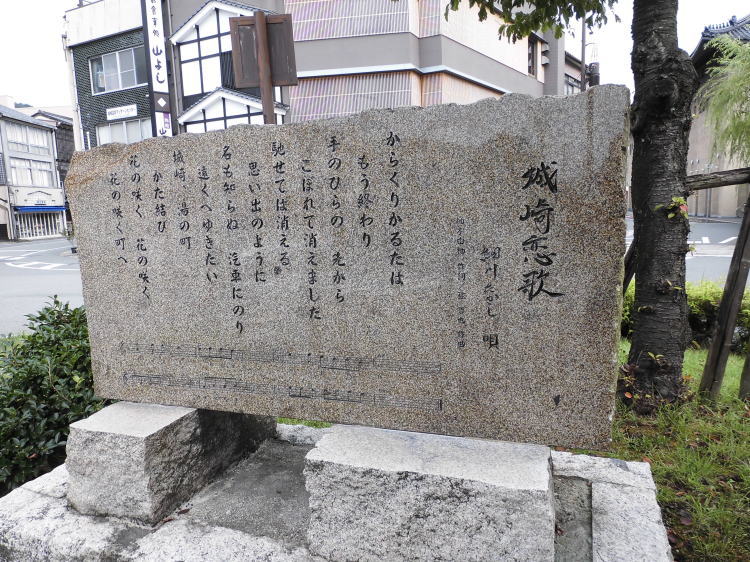 城崎恋歌
唄
からくりかるたは
もう終わり
手のひらの 先から
こぼれて消えました
馳せては消える
思い出のように
名も知らぬ 汽車にのり
遠くへゆきたい
城崎 湯の町
かた結び
花の咲く 花の咲く
花の咲く町へ
山よし